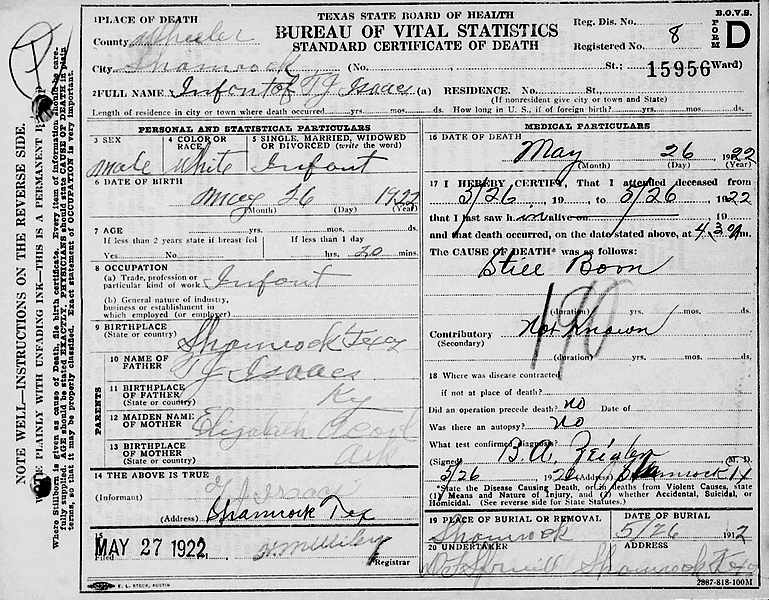 TEXAS STATE BOARD OF HEALTH
BUREAU OF VITAL STATISTICS
STANDARD CERTIFICATE OF DEATH
B.O.V.S.
FORM D
Reg. Dis. No.
Registered No. 8
15956
1 PLACE OF DEATH
County Wheeler
City Shamrock (No. St.; Ward)
2 FULL NAME Infant of T J Isaacs (a) RESIDENCE. No. St.,
(If nonresident give city or town and State)
Length of residence in city or town where death occurred yrs. mos. ds. How long in U. S., if of foreign birth? yrs. mos. ds.
PERSONAL AND STATISTICAL PARTICULARS
3 SEX
male
4 COLOR OR RACE.
white
5 SINGLE, MARRIED, WIDOWED OR DIVORCED (write the word)
Infant
6 DATE OF BIRTH
May 26 1922
(Month) (Day) (Year)
7 AGE yrs. mos. ds.
If less than 2 years state if breast fed If less than 1 day
Yes No hrs. 20 mins.
8 OCCUPATION
(a) Trade, profession or particular kind of work Infant
(b) General nature of industry, business or establishment in which employed (or employer)
9 BIRTHPLACE
(State or country) Shamrock Texas
PARENTS
10 NAME OF FATHER T J Isaacs
11 BIRTHPLACE OF FATHER
(State or country) Ky
12 MAIDEN NAME OF MOTHER Elizabeth
13 BIRTHPLACE OF MOTHER
(State or country) Ark
14 THE ABOVE IS TRUE
(Informant) T J Isaacs
(Address) Shamrock Tex
MAY 27 1922
Filed
Registrar
E. L. STECK, AUSTIN
MEDICAL PARTICULARS
16 DATE OF DEATH
May 26 1922
(Month) (Day) (Year)
17 I HEREBY CERTIFY, That I attended deceased from
5/26, 19 to 5/26 1922
that I last saw h im alive on 19
and that death occurred, on the date stated above, at 4 3 m.
The CAUSE OF DEATH* was as follows:
Still Born
190
(duration) yrs. mos. ds.
Contributory Not Known
(Secondary)
(duration) yrs. mos. ds.
18 Where was disease contracted
if not at place of death?
Did an operation precede death? no Date of
Was there an autopsy? no
What test confirmed diagnosis?
(Signed) B. A. Zeigler (M. D.)
5/26 192 (Address) Shamrock Tx
State the Disease Causing Death, or in deaths from Violent Causes, state
(1) Means and Nature of Injury, and (2) whether Accidental, Suicidal, or
Homicidal. (See reverse side for State Statutes.)
19 PLACE OF BURIAL OR REMOVAL DATE OF BURIAL
Shamrock 5/26 1912
20 UNDERTAKER ADDRESS
Shamrock Texas
2887-818-100M
NOTE WELL—INSTRUCTIONS ON THE REVERSE SIDE.
WRITE PLAINLY WITH UNFADING INK—THIS IS A PERMANENT
Where Stillborn is given as cause of Death, file birth certificate. Every item of information should be care-
fully supplied. AGE should be stated EXACTLY. PHYSICIANS should state CAUSE OF DEATH in plain
terms, so that it may be properly classified. Exact statement of OCCUPATION is very important.